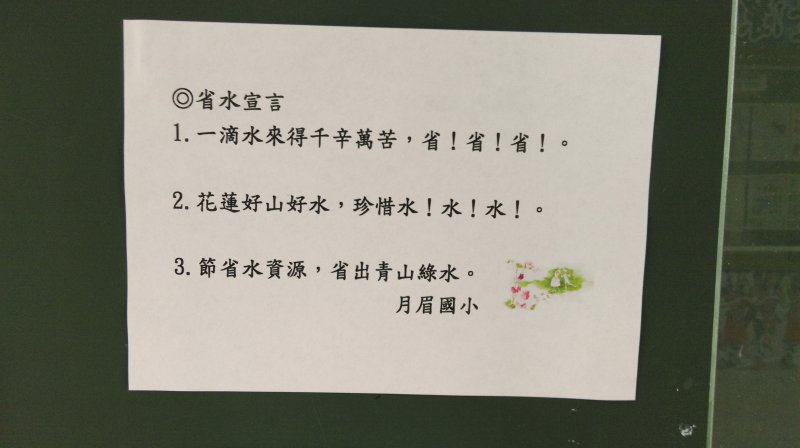 ◎省水宣言
1.一滴水來得千辛萬苦，省！省！省！。
2.花蓮好山好水，珍惜水！水！水！。
3.節省水資源，省出青山綠水。
月眉國小